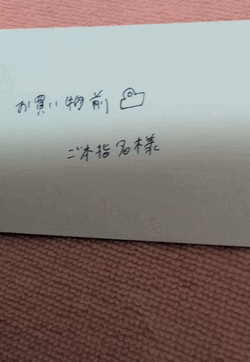 お買い物前
ご本指名様